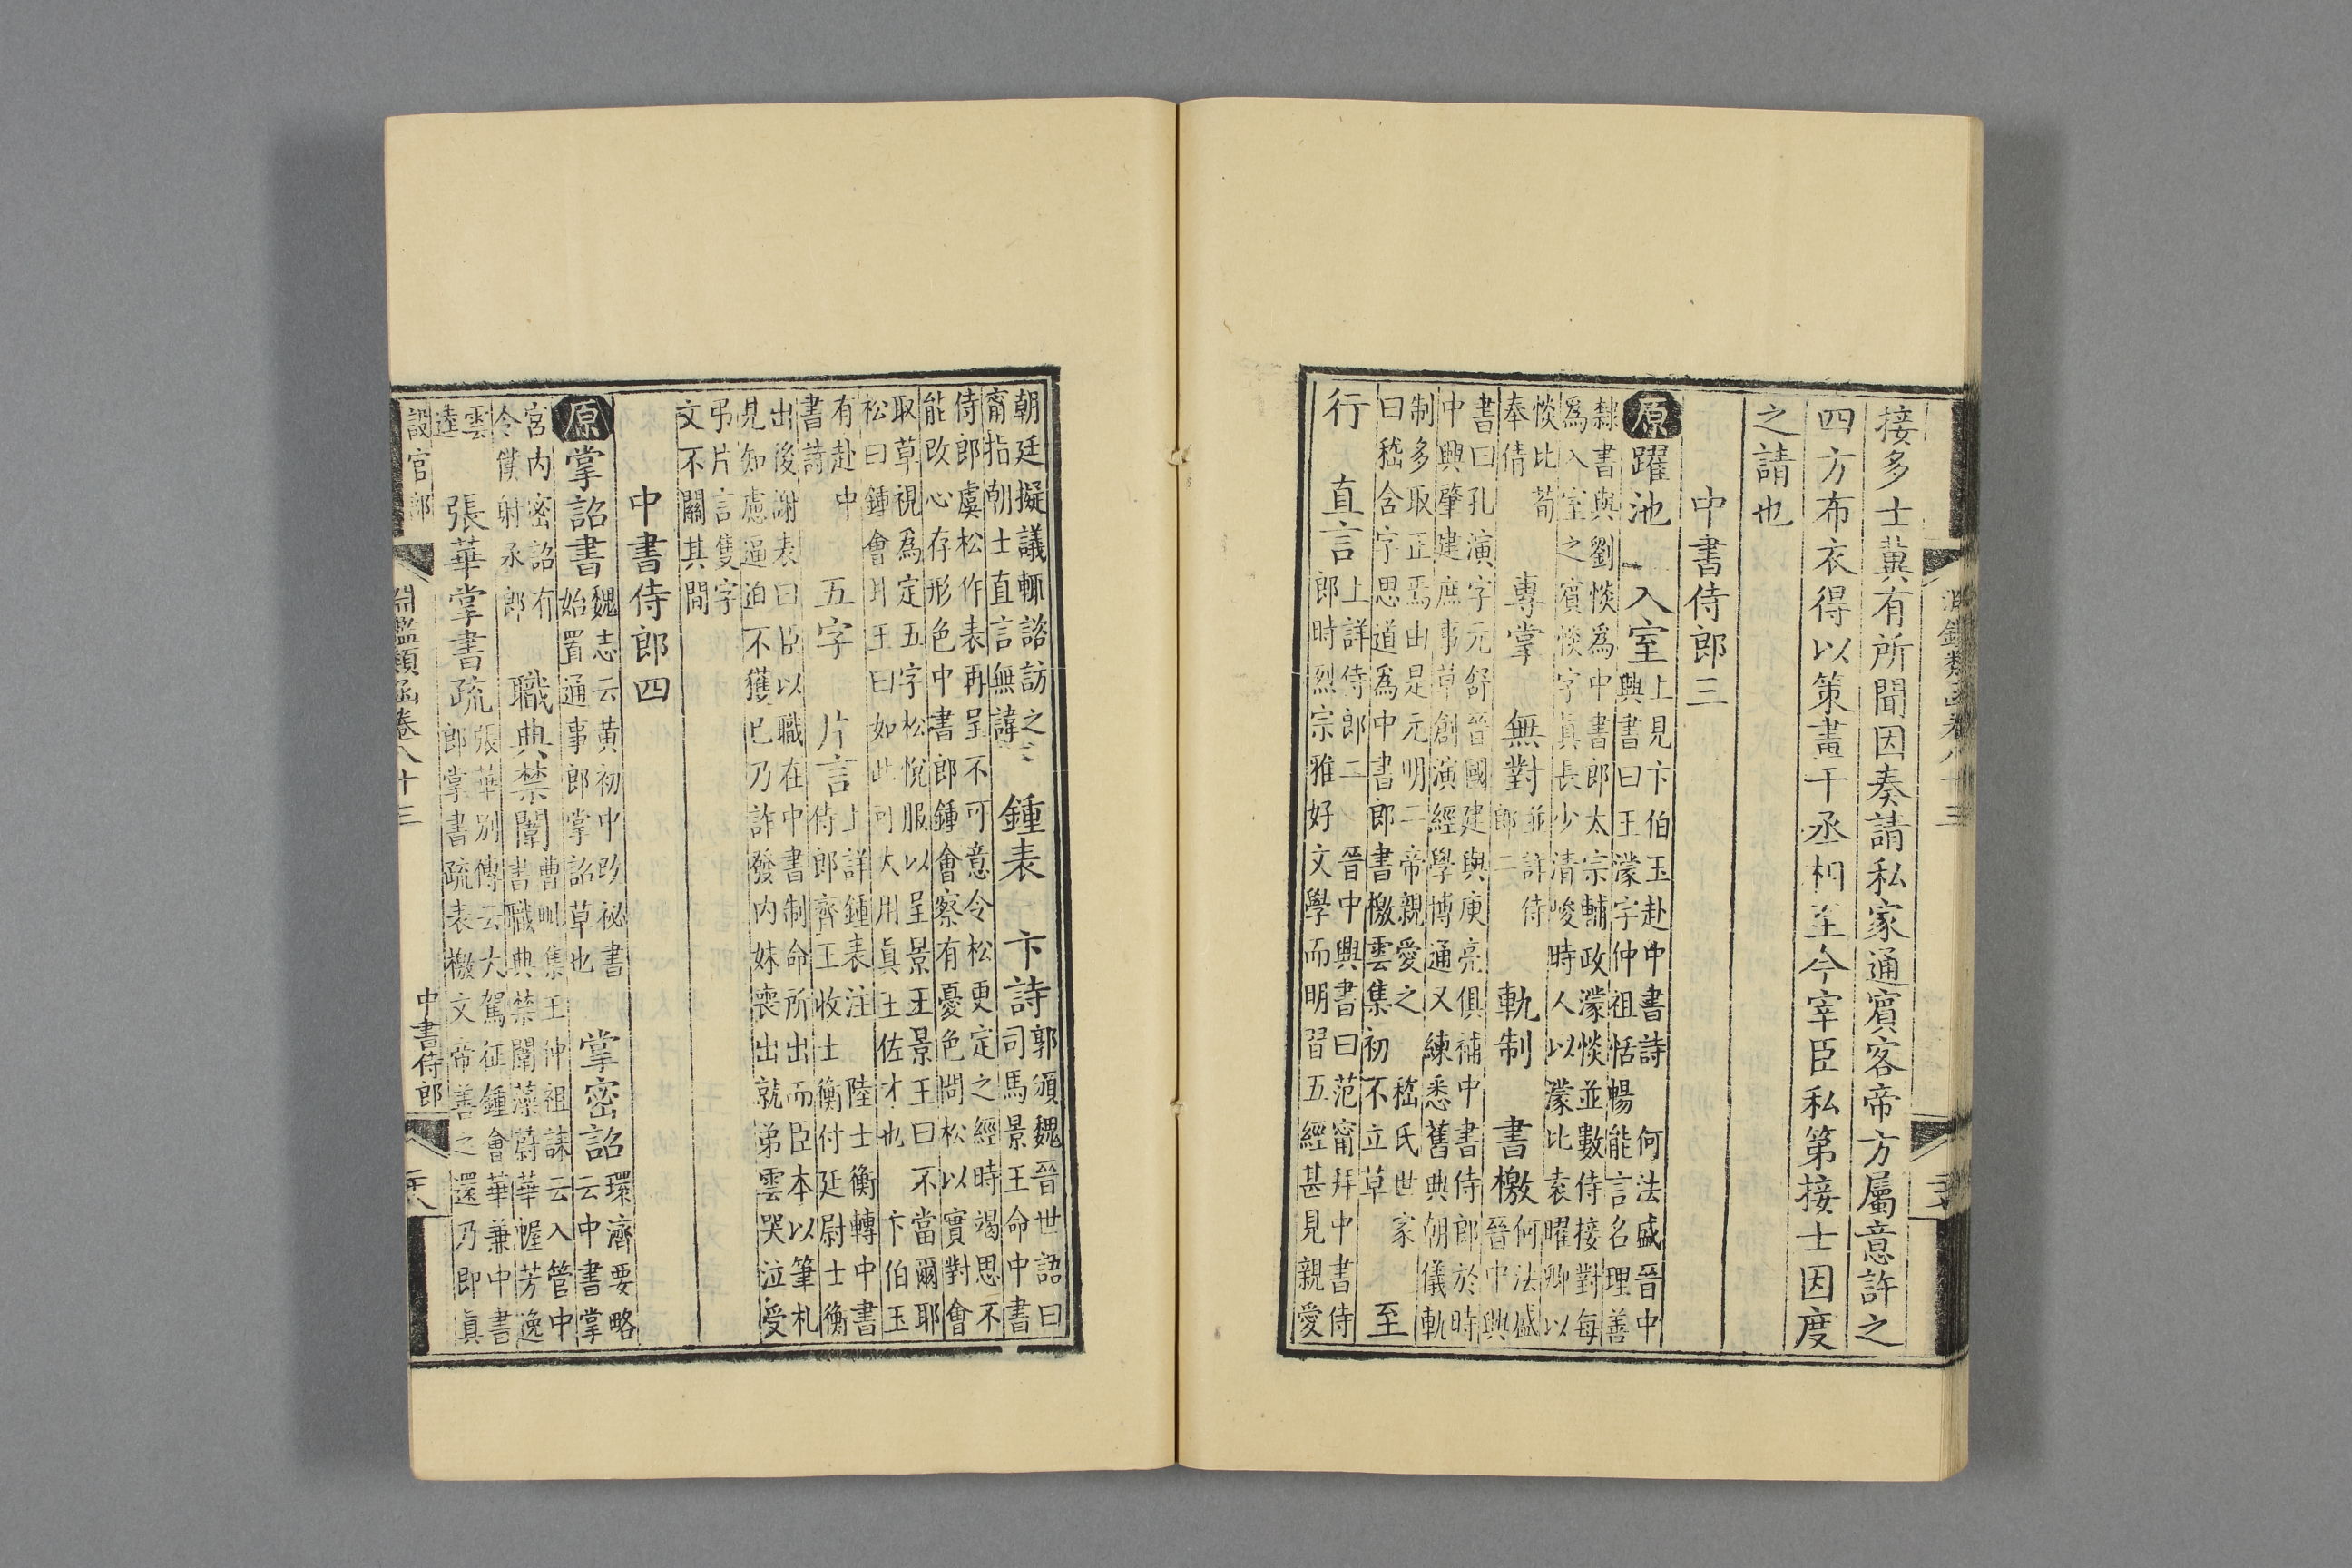 接多士冀有所聞因奏請私家通賓客帝方屬意許之
四方布衣得以策畫干丞相至今宰臣私第接士因度
之請也
中書侍郎三
原躍池 入室上見卞伯玉赴中書詩 何法盛晉中
興書曰王濛字仲祖恬暢能言名理善
隸書與劉惔為中書郎太宗輔政濛惔並數侍接對每
為入室之賓惔字真長少清峻時人以濛比袁曜卿以
惔比荀
奉倩 專掌 無對並詳侍
郎二 軌制 書檄何法盛
晉中興
書曰孔演字元舒晉國建與庾亮俱補中書侍郎於時
中興肇建庶事草創演經學博通又練悉舊典朝儀軌
制多取正焉由是元明二帝親愛之 嵇氏世家
曰嵇含字思道為中書郎書檄雲集初不立草 至
行 直言上詳侍郎二 晉中興書曰范甯拜中書侍
郎時烈宗雅好文學而明習五經甚見親愛
朝廷擬議輒諮訪之
甯指朝士直言無諱 鍾表 卞詩郭頒魏晉世語曰
司馬景王命中書
侍郎虞松作表再呈不可意令松更定之經時竭思不
能改心存形色中書郎鍾會察有憂色問松以實對會
取草視為定五字松悅服以呈景王景王曰不當爾耶
松曰鍾會也王曰如此可大用真王佐才也 卞伯玉
有赴中
書詩 五字 片言上詳鍾表注 陸士衡轉中書
侍郎齊王收士衡付廷尉士衡
出後謝表曰臣以職在中書制命所出而臣本以筆札
見知慮逼迫不獲已乃詐發內妹喪出就弟雲哭泣受
弔片言隻字
文不關其間
中書侍郎四
原掌詔書魏志云黃初中改祕書
始置通事郎掌詔草也 掌密詔環濟要略
云中書掌
宮內密詔有
令僕射丞郎 職典禁闈曹毗集王仲祖誄云入管中
書職典禁闈藻蔚華幄芳逸
雲
逵 張華掌書疏張華別傳云大駕征鍾會華兼中書
郎掌書疏表檄文帝善之還乃即真
設官部
淵鑑類函卷八十三
中書侍郎